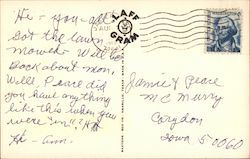 Hi - you all
Got the lawn
mower. Will
Book about mon.
Well Pearl did
you have anything
like this when you
were "in"? HA
LAFF
GRAM
Jamie & Pearl
Mc Murry
Corydon
Iowa 50060